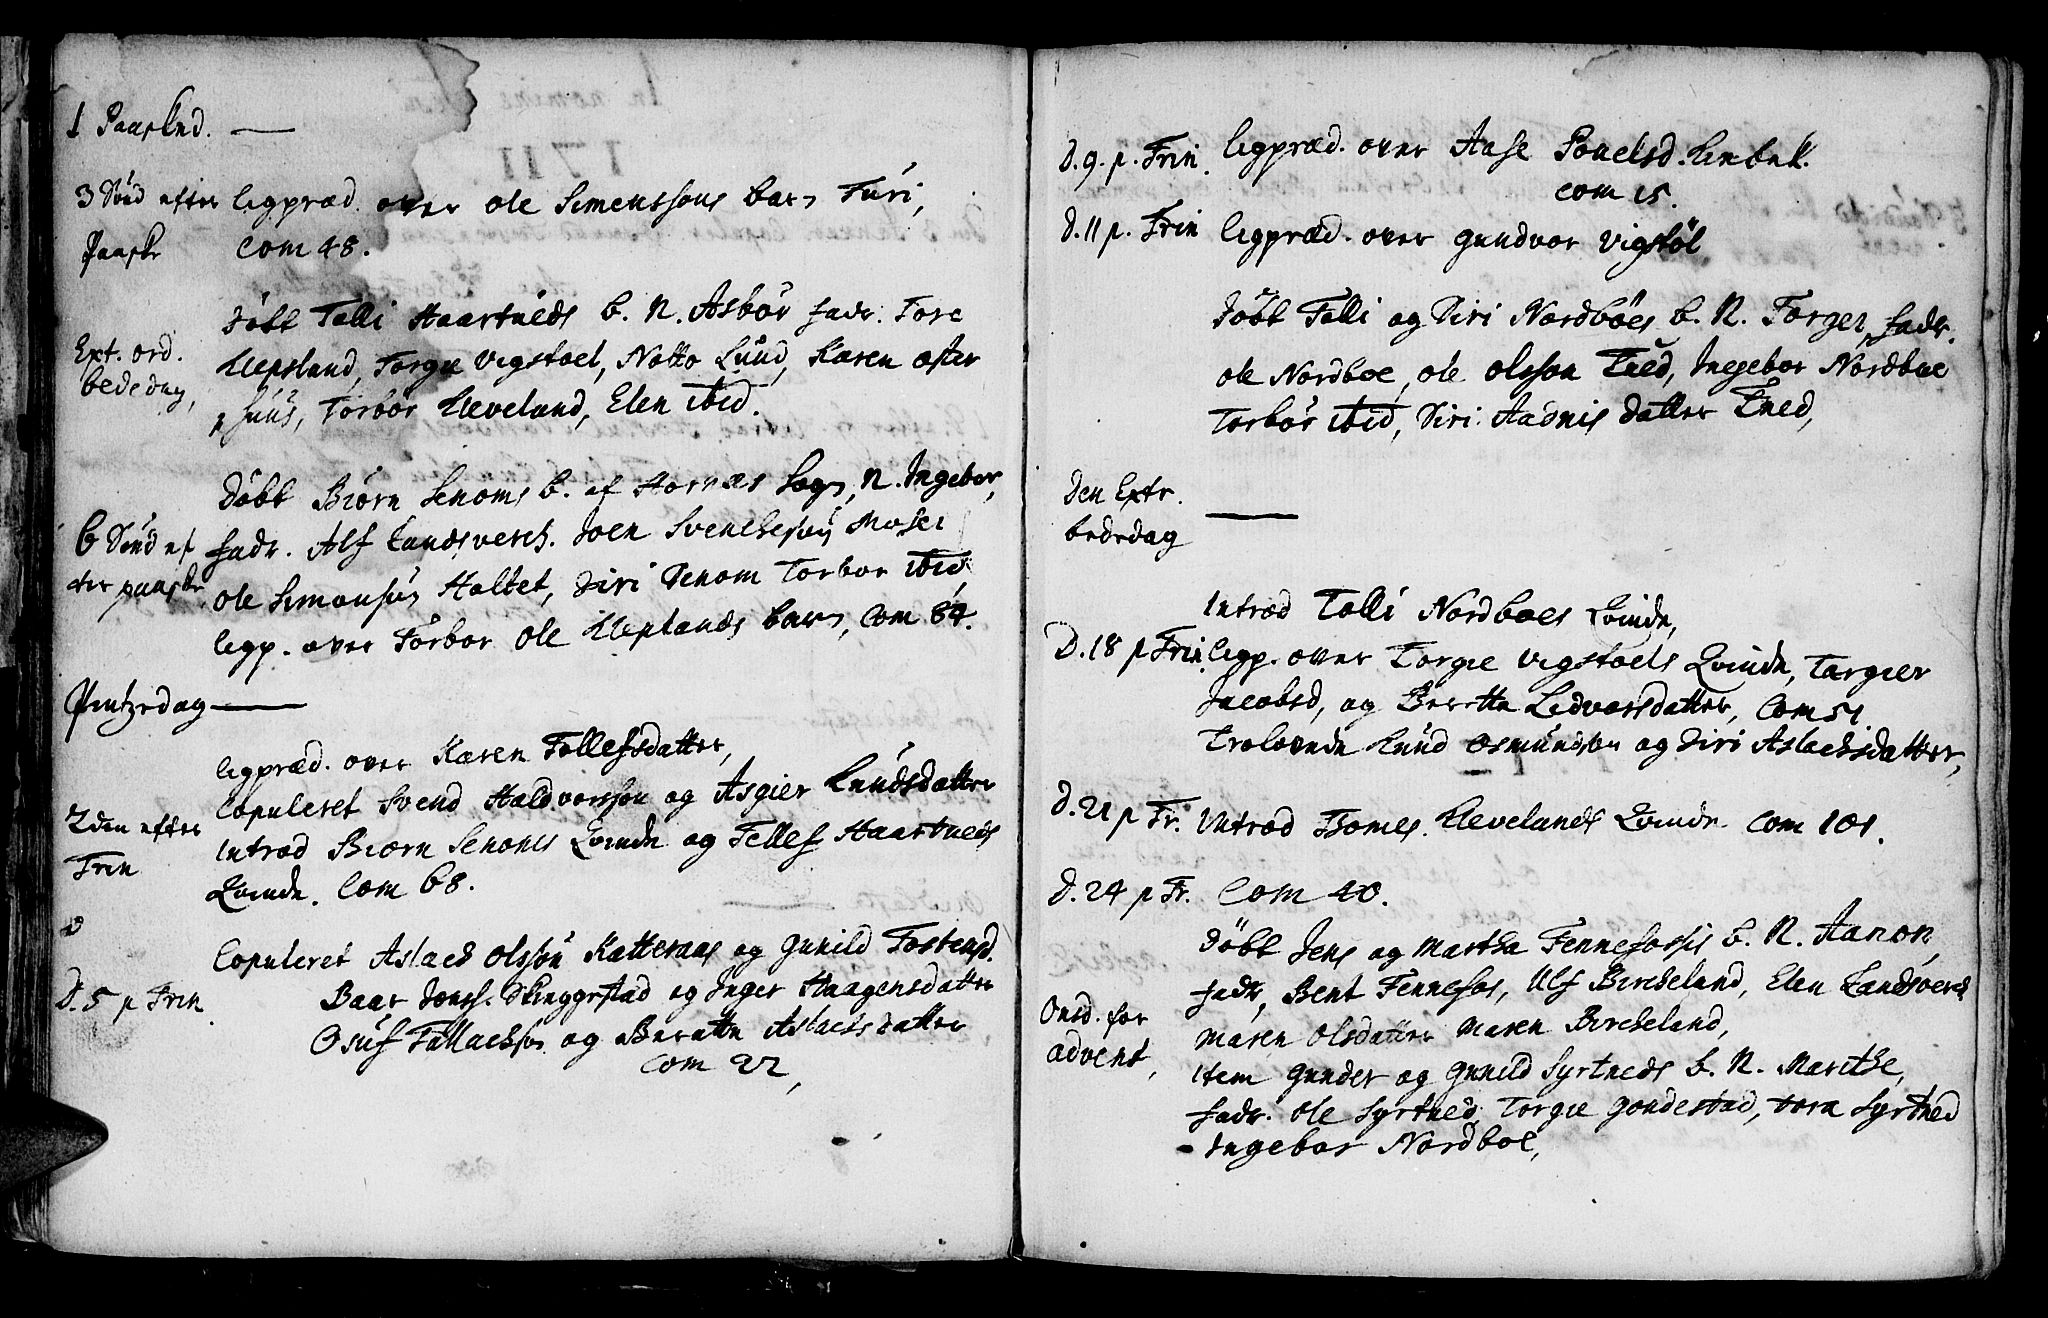 1 Paasked. —
3 Sönd efter ligpræd. over ole Simenssöns barn Turi,
Paaske Com 48.
Ext. ord. bededag,
Döbt Tolli Haartveds b. N. Asbör fadr. Tore
Klepsland, Torgie Vigstoel, Notto Lund, Karen ofter
huus, Torbör Kleveland, Elen ibid.
6 Sönd ef
ter paaske
Döbt Biörn Senoms b. af Hornæs Sogn, N. Ingebor,
fadr. Alf Landsverch. Joen Svenchesön Mosei
ole Simonsön Holtet, Siri Senom Torbor ibid,
ligp. over Torbor ole Kleplands barn, Com 84.
Pintzedag —
2den efter
Trin
ligpræd. over Karen Tollefsdatter,
Copuleret Svend Haldvorsson og Asgier Knudsdatter
Introd Biörn Senoms Qvinde og Tellef Haartveds
Qvinde. Com 68.
D. 5 p Trin.
Copuleret Aslach Olssön Katteraas og Gunild Tostensd.
Baar Jonss. Skinggrstad og Inger Haagensdatter
Osuf Tallachsön og Beratte Aslachsdatter
Com 22,
D. 9. p. Trin. ligpræd. over Aase Povelsd.
Com 15.
D. 11 p. Trin ligpræd. over Gundvor Vigstöl
Döbt Tolli og Siri Nordböes b. N. Torger, fadr.
ole Nordboe, ole olsson Tved, Ingebor Nordboe
Torbör ibid, Siri Aadnis datter Tved,
Den Extr.
bededag —
Introd Tolli Nordboes Qvinde,
D. 18 p Trin. ligp. over Torgie Vigstoels Qvinde, Torgier
Jacobsd, og Beretta Ledvorsdatter, Com 51.
Trolovede Knud Osmundsøn og Siri Aslachsdatter,
D. 21 p Tr. Introd Tomes Klevelands Qvinde Com 101.
D. 24 p Tr. Com 40.
Onsd. for
advent,
Döbt Jens og Martha Fennefossis b. N. Aanon,
fadr, Bent Fennefos, Ulf Bircheland, Elen Landsverch
Maren Olsdatter Maren Bircheland,
Item Gunder og Gunild Syrtveds b. N. Marethe,
fadr. ole Syrtved, Torgie Gondestad, tora Syrtved
Ingebor Nordboe,